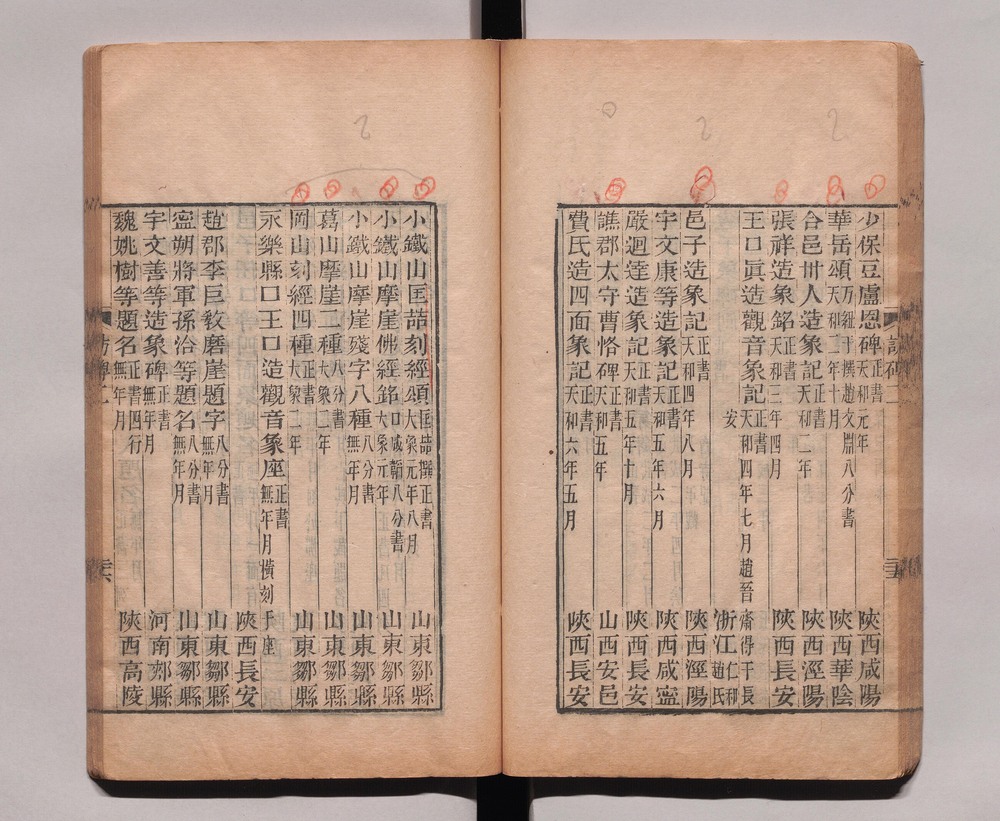 少保豆盧恩碑 正書 天和元年 陝西咸陽
華岳頌 万紐于撰趙文淵八分書 天和二年十月 陝西華陰
合邑卅人造象記 正書 天和二年 陝西涇陽
張祥造象銘 正書 天和三年四月 陝西長安
王口眞造觀音象記 正書 天和四年七月趙晉齋得于長安 浙江仁和趙氏
邑子造象記 正書 天和四年八月 陝西涇陽
宇文康等造象記 正書 天和五年六月 陝西咸寧
嚴迴達造象記 正書 天和五年十月 陝西長安
譙郡太守曹恪碑 正書 天和五年 山西安邑
費氏造四面象記 正書 天和六年五月 陝西長安
小鐵山匡喆刻經頌 匡喆撰正書 大象元年八月 山東鄒縣
小鐵山摩崖佛經銘 八分書 大象元年 山東鄒縣
小鐵山摩崖殘字八種 八分書 無年月 山東鄒縣
葛山摩崖二種 八分書 大象二年 山東鄒縣
岡山刻經四種 正書 大象二年 山東鄒縣
永樂縣口王口造觀音象座 正書 無年月橫刻于座 陝西長安
趙郡李巨敎磨崖題字 八分書 無年月 山東鄒縣
寧朔將軍孫洽等題名 八分書 無年月 山東鄒縣
宇文善等造象碑 正書 無年月 河南郟縣
魏姚樹等題名 正書四行 無年月 陝西高陵